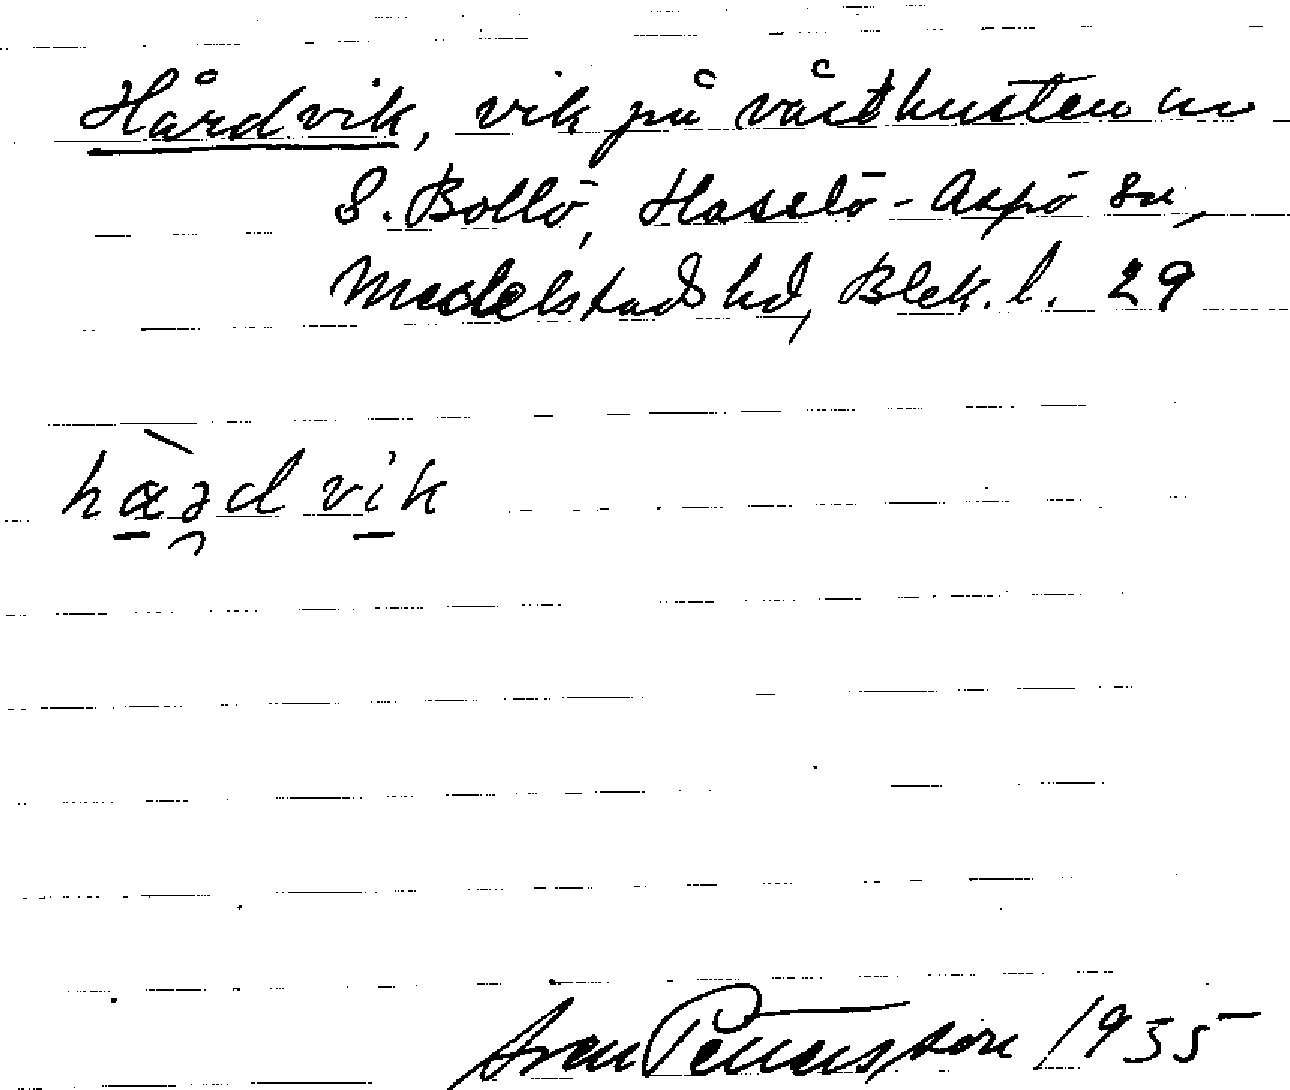 Hårdvik, vik på västkusten av
S. Bollö, Hasslö-Aspö sn,
Medelstads hd, Blek. l. 29
hàədvik
Sven Pettersson 1935